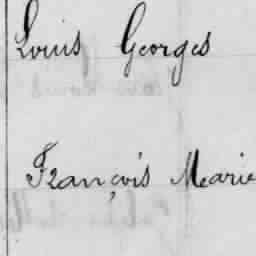 Louis Georges
François Marie